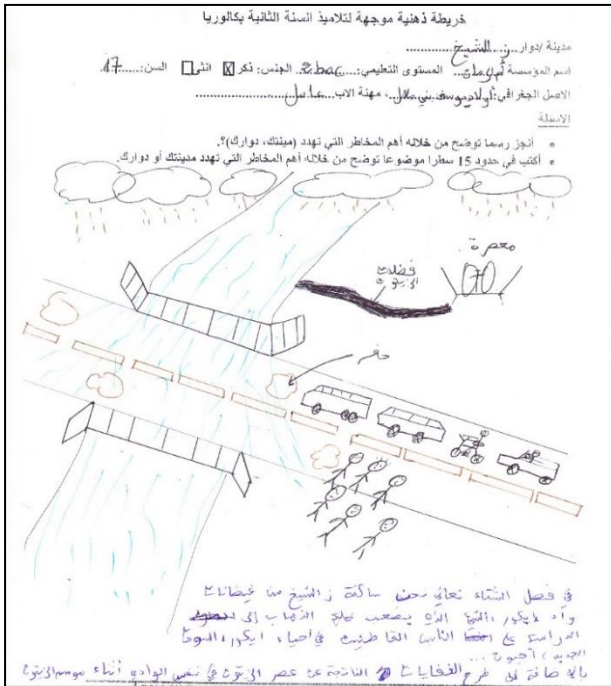 خريطة ذهنية موجهة لتلاميذ السنة الثانية بكالوريا
مدينة /دوار...ز الشيخ...
اسم المؤسسة ... المستوى التعليمي:...2bac... الجنس: ذكر ☒ انثى ☐ السن:...17...
الاصل الجغرافي:... مهنة الاب...عامل...
الاسئلة
أنجز رسما توضح من خلاله أهم المخاطر التي تهدد (مينتك، دوارك)؟.
أكتب في حدود 15 سطرا موضوعا توضح من خلاله أهم المخاطر التي تهدد مدينتك أو دوارك.
معصرة
فضلات
الزيتون
حفر
في فصل الشتاء نعاني نحن ساكنة ز الشيخ من فيضانات
واد الذي يصعب الذهاب إلى
الدراسة الناس القاطنين في أحياء
الجديد،
بالإضافة إلى طرح الناتجة عن عصر الزيتون في نفس الوادي أثناء موسم الزيتون